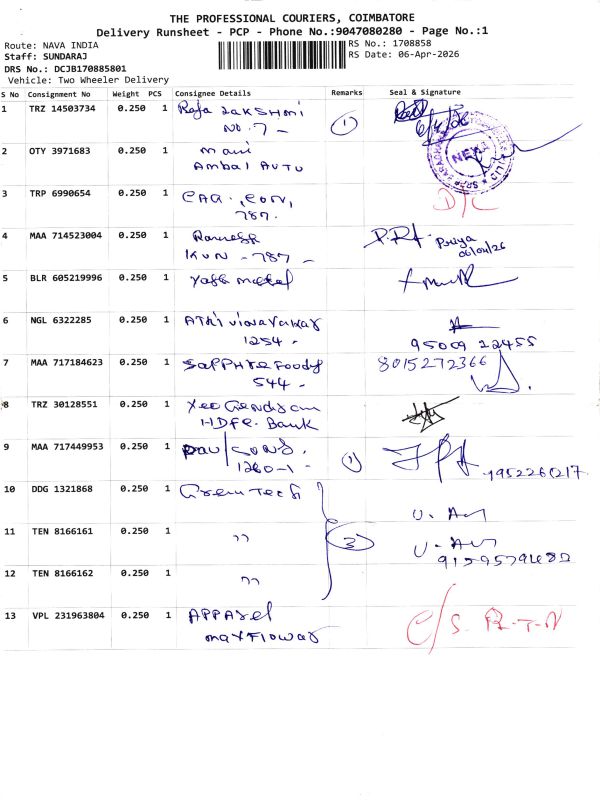 THE PROFESSIONAL COURIERS, COIMBATORE
Delivery Runsheet - PCP - Phone No.:9047080280 - Page No.:1
Route: NAVA INDIA
RS No.: 1708858
Staff: SUNDARAJ
RS Date: 06-Apr-2026
DRS No.: DCJB170885801
Vehicle: Two Wheeler Delivery
S No Consignment No Weight PCS Consignee Details Remarks Seal & Signature
1 TRZ 14503734 0.250 1 Raja LAKSHMI
No. 7 - 1
2 OTY 3971683 0.250 1 Mani
Ambal AUTO
3 TRP 6990654 0.250 1 D/C
787.
4 MAA 714523004 0.250 1 Ramesh Priya
KVN - 787 - 06/04/26
5 BLR 605219996 0.250 1 Yash metal
6 NGL 6322285 0.250 1 Athi vinayakar
1254 - 95009 22455
7 MAA 717184623 0.250 1 Sapphire Foods 8015272366
544 -
8 TRZ 30128551 0.250 1
HDFC. Bank
9 MAA 717449953 0.250 1 CONS.
1260-1 - 1
10 DDG 1321868 0.250 1 Green Tech
11 TEN 8166161 0.250 1 " 3
12 TEN 8166162 0.250 1 "
13 VPL 231963804 0.250 1 APPArel C/S. R-T-N
mayFlower